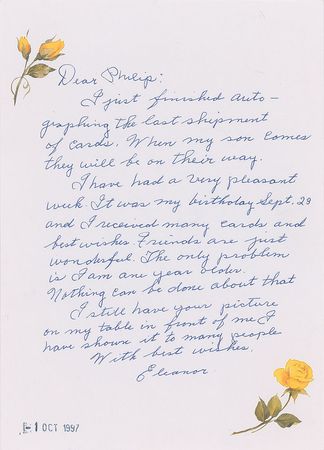 Dear Philip:
I just finished auto-
graphing the last shipment
of cards. When my son comes
they will be on their way.
I have had a very pleasant
week. It was my birthday Sept. 29
and I received many cards and
best wishes. Friends are just
wonderful. The only problem
is I am one year older.
Nothing can be done about that
I still have your picture
on my table in front of me. I
have shown it to many people
With best wishes,
Eleanor
-1 OCT 1997